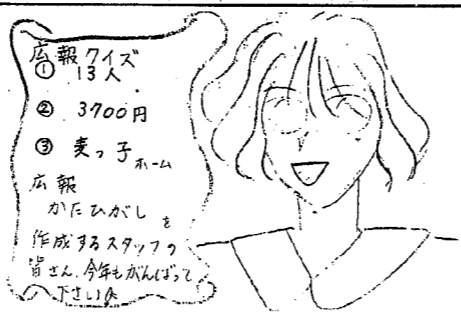 広報クイズ
① 13人
② 3700円
③ 麦っ子ホーム
広報
かたひがしを
作成するスタッフの
皆さん、今年もがんばって
下さい